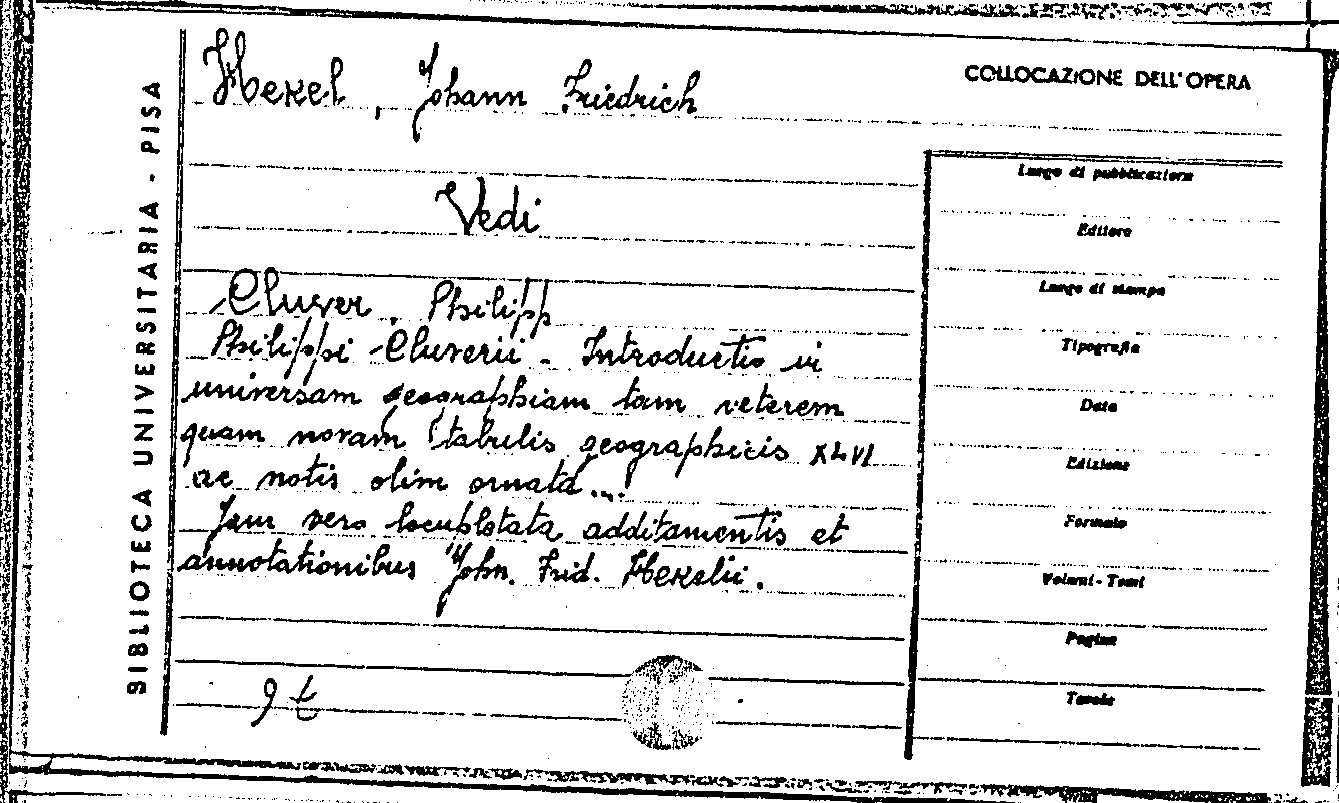 Hekel, Johann Friedrich
COLLOCAZIONE DELL'OPERA
BIBLIOTECA UNIVERSITARIA - PISA
Vedi
Cluver, Philipp
Philippi Cluverii - Introductio in
universam geographiam tam veterem
quam novam (tabulis geographicis XLVI
ac notis olim ornata...)
Jam vero locupletata additamentis et
annotationibus John. Frid. Hekelii.
9 t
Luogo di pubblicazione
Editore
Luogo di stampa
Tipografia
Data
Edizione
Formato
Volumi - Tomi
Pagine
Tavole